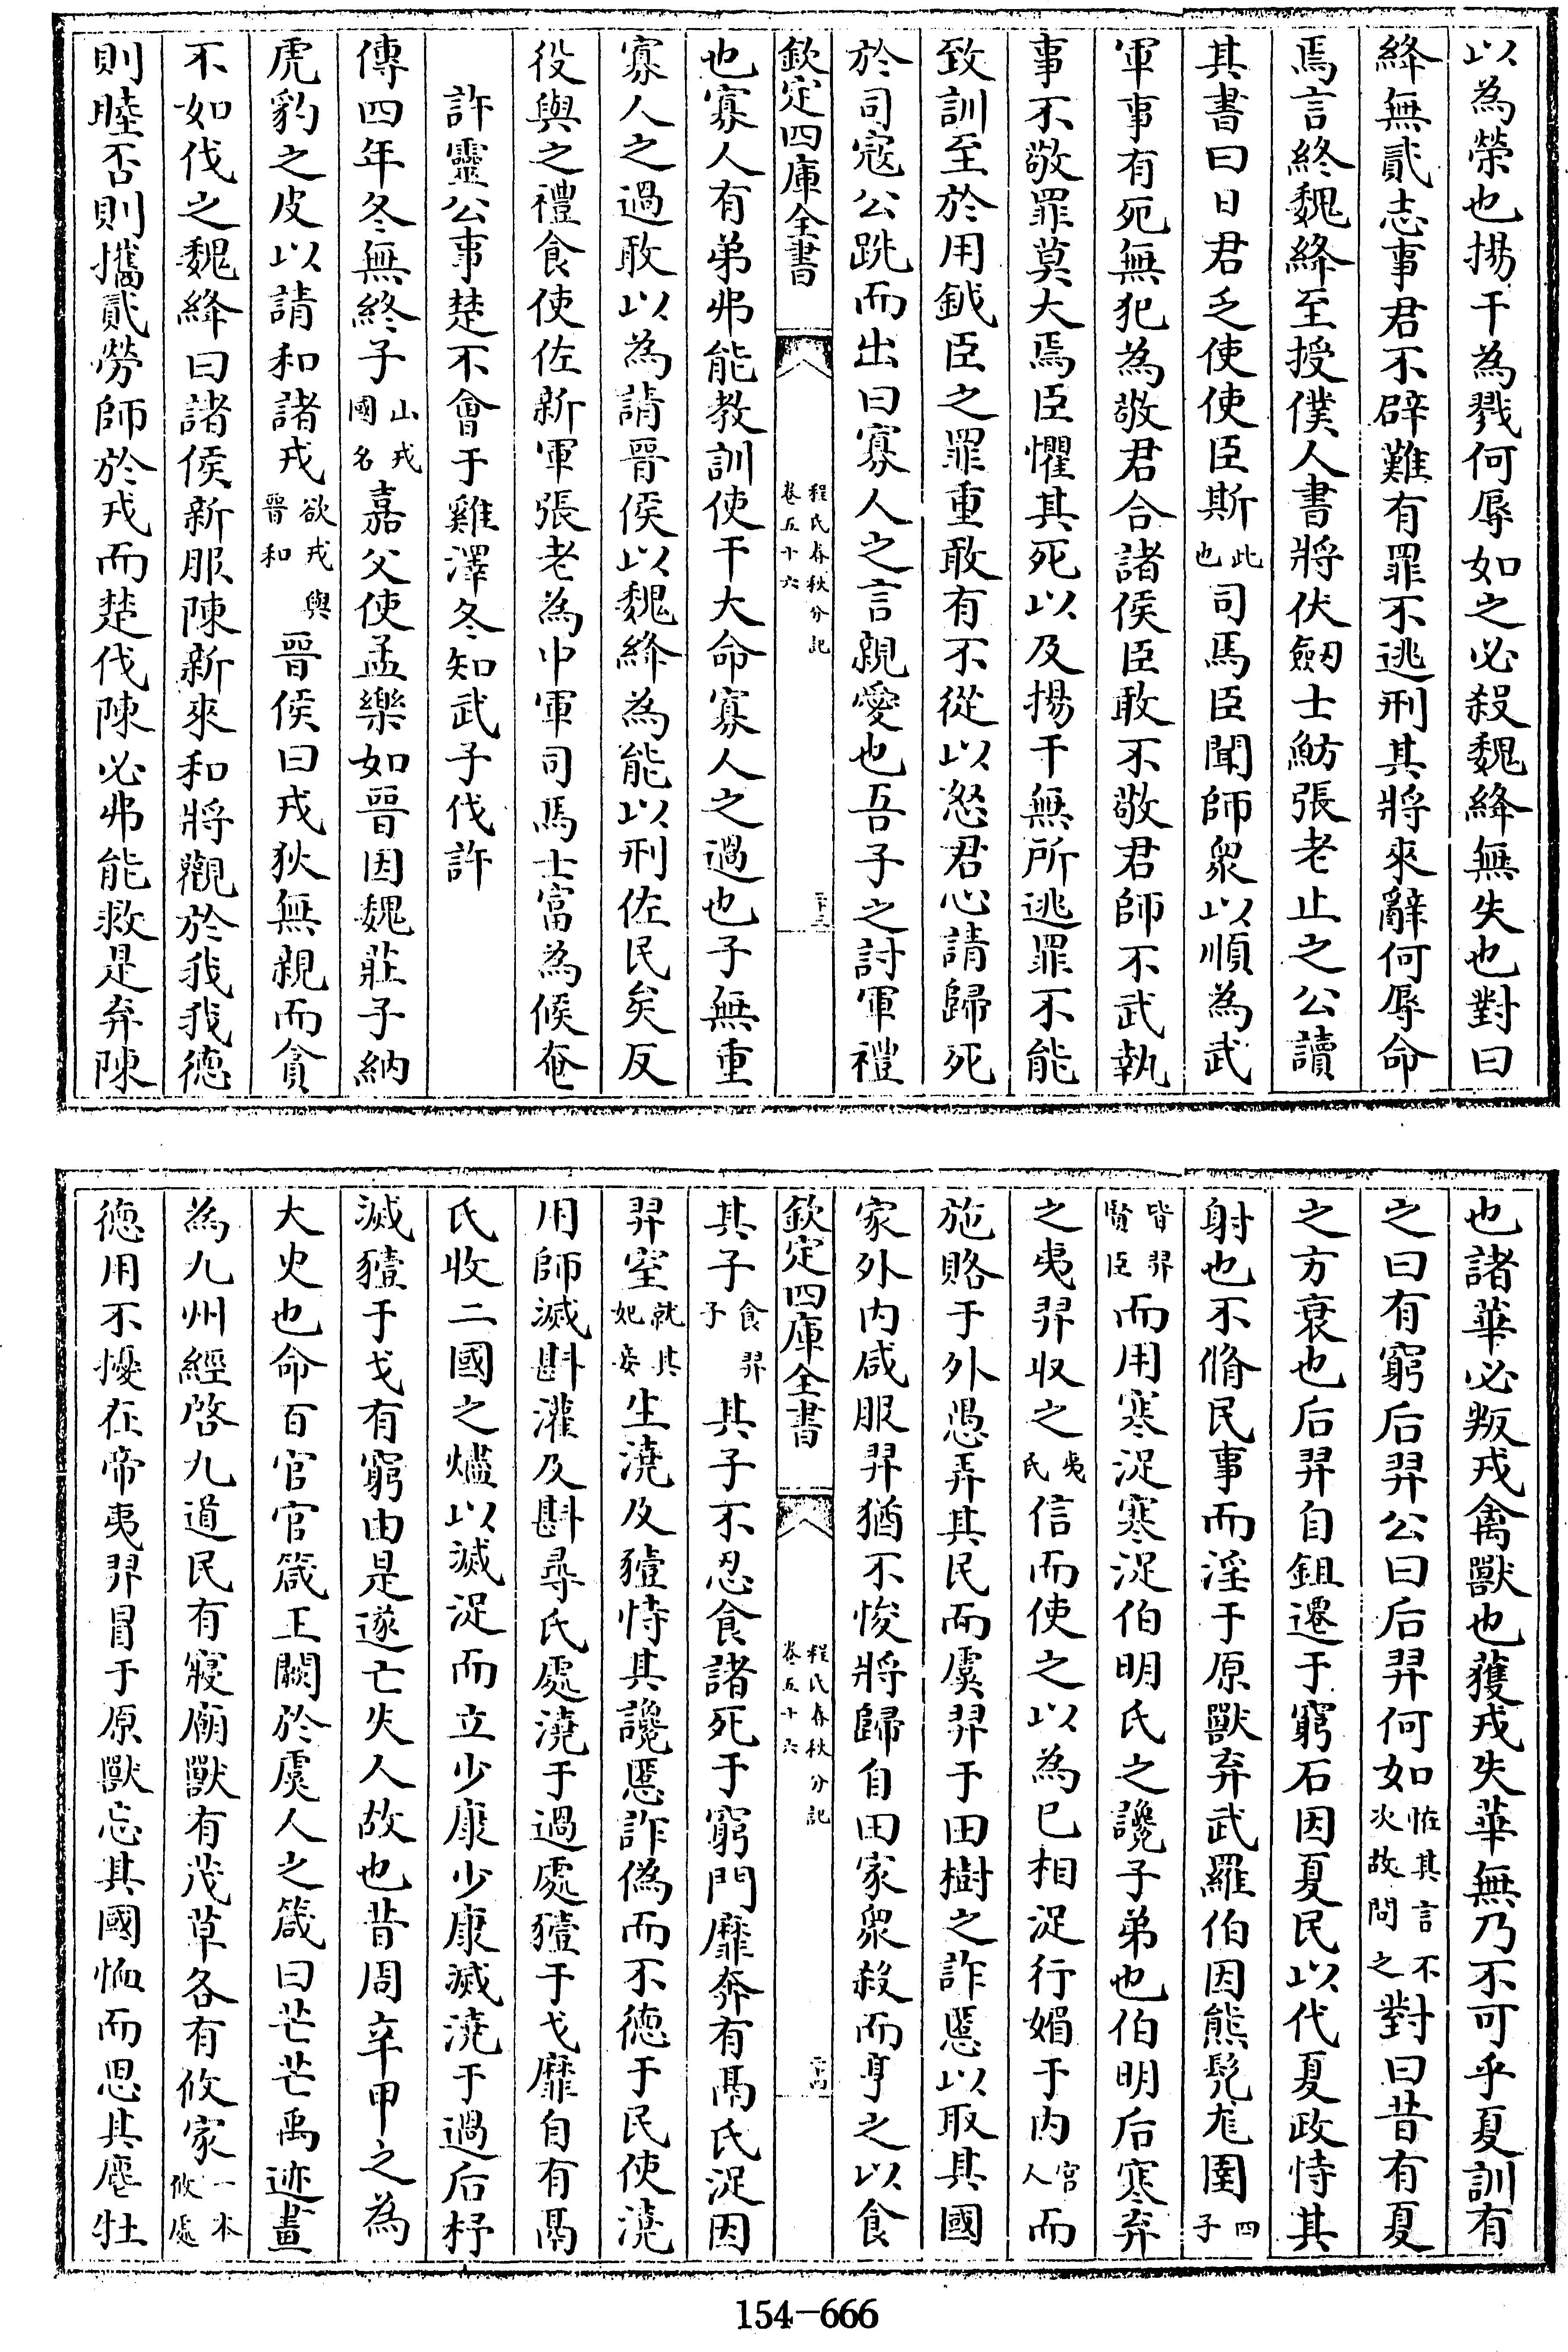 以為榮也揚干為戮何辱如之必殺魏絳無失也對曰
絳無貳志事君不辟難有罪不逃刑其將來辭何辱命
焉言終魏絳至授僕人書將伏劒士魴張老止之公讀
其書曰日君乏使使臣斯此也司馬臣聞師衆以順為武
軍事有死無犯為敬君合諸侯臣敢不敬君師不武執
事不敬罪莫大焉臣懼其死以及揚干無所逃罪不能
致訓至於用鉞臣之罪重敢有不從以怒君心請歸死
於司寇公跣而出曰寡人之言親愛也吾子之討軍禮
欽定四庫全書 程氏春秋分記卷五十六 二十三
也寡人有弟弗能教訓使干大命寡人之過也子無重
寡人之過敢以為請晉侯以魏絳為能以刑佐民矣反
役與之禮食使佐新軍張老為中軍司馬士富為候奄
許靈公事楚不會于雞澤冬知武子伐許
傳四年冬無終子山戎國名嘉父使孟樂如晉因魏莊子納
虎豹之皮以請和諸戎欲戎與晉和晉侯曰戎狄無親而貪
不如伐之魏絳曰諸侯新服陳新來和將觀於我我德
則睦否則攜貳勞師於戎而楚伐陳必弗能救是弃陳
也諸華必叛戎禽獸也獲戎失華無乃不可乎夏訓有
之曰有窮后羿公曰后羿何如怪其言不次故問之對曰昔有夏
之方衰也后羿自鉏遷于窮石因夏民以代夏政恃其
射也不脩民事而淫于原獸弃武羅伯因熊髠尨圉四子
皆羿賢臣而用寒浞寒浞伯明氏之讒子弟也伯明后寒弃
之夷羿收之夷氏信而使之以為已相浞行媚于內宮人而
施賂于外愚弄其民而虞羿于田樹之詐慝以取其國
家外內咸服羿猶不悛將歸自田家衆殺而亨之以食
欽定四庫全書 程氏春秋分記卷五十六 二十四
其子食羿子其子不忍食諸死于窮門靡奔有鬲氏浞因
羿室就其妃妾生澆及豷恃其讒慝詐偽而不德于民使澆
用師滅斟灌及斟尋氏處澆于過處豷于戈靡自有鬲
氏收二國之燼以滅浞而立少康少康滅澆于過后杼
滅豷于戈有窮由是遂亡失人故也昔周辛甲之為
大史也命百官官箴王闕於虞人之箴曰芒芒禹迹畫
為九州經啓九道民有寢廟獸有茂草各有攸家一本攸處
德用不擾在帝夷羿冒于原獸忘其國恤而思其麀牡
154-666